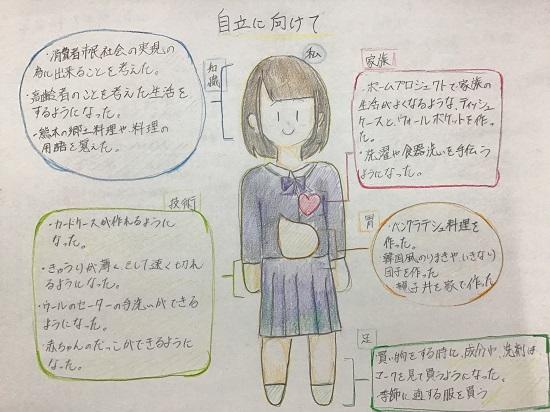 自立に向けて
私
知識
・消費者市民社会の実現の
為に出来ることを考えた。
・高齢者のことを考えた生活を
するようになった。
・熊本の郷土料理や料理の
用語を覚えた。
家族
・ホームプロジェクトで家族の
生活がよくなるような、ティッシュ
ケースと、ウォールポケットを作っ
た。
・洗濯や食器洗いを手伝う
ようになった。
技術
・カードケースが作れるように
なった。
・きゅうりが薄く、そして速く切れ
るようになった。
・ウールのセーターの手洗いができる
ようになった。
・赤ちゃんのだっこができるように
なった。
胃
・バングラデシュ料理を
作った。
韓国風のりまきや、いきなり
団子を作った
親子丼を家で作った
足
買い物をする時に、成分や、洗剤は、
マークを見て買うようになった。
季節に適する服を買う